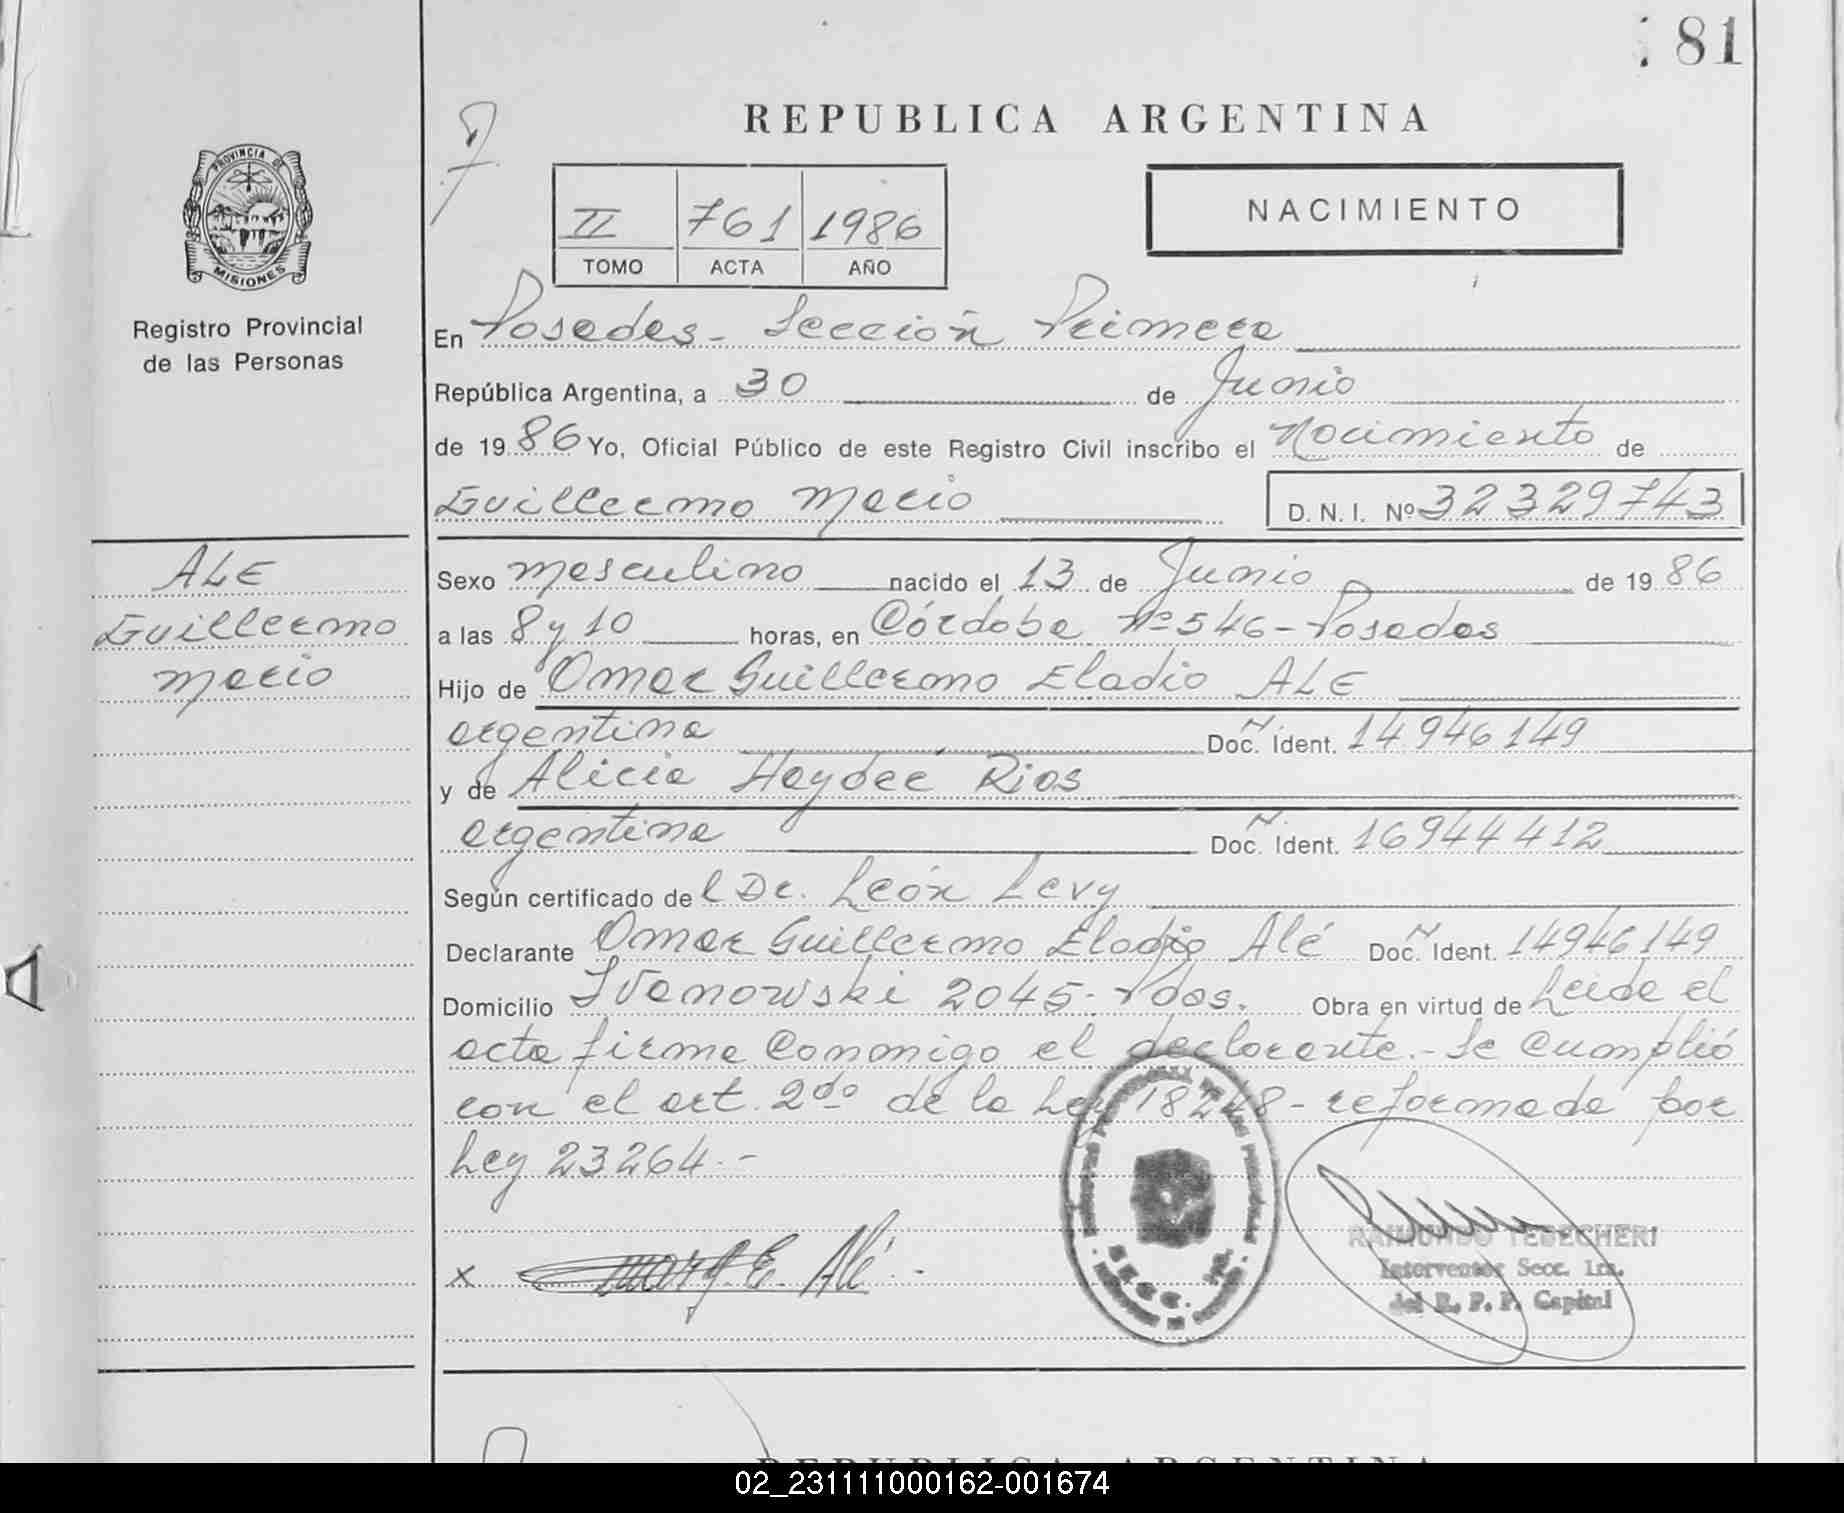 81
REPUBLICA ARGENTINA
PROVINCIA DE
MISIONES
Registro Provincial
de las Personas
II 761 1986
TOMO ACTA AÑO
NACIMIENTO
En Posadas - Sección Primera
República Argentina, a 30 de Junio
de 19 86 Yo, Oficial Público de este Registro Civil inscribo el Nacimiento de
Guillermo Mario D. N. I. Nº 32329743
ALE
Guillermo
Mario
Sexo masculino nacido el 13 de Junio de 19 86
a las 8 y 10 horas, en Córdoba Nº 546 - Posadas
Hijo de Omar Guillermo Eladio ALE
argentina Doc. Ident. 14946149
y de Alicia Haydeé Rios
argentina Doc. Ident. 16944412
Según certificado de l Dr. León Levy
Declarante Omar Guillermo Eladio Alé Doc. Ident. 14946149
Domicilio Ivanowski 2045 - Pdas. Obra en virtud de Leida el
acta firma conmigo el declarante. - Se cumplió
con el art. 2do de la Ley 18248 - reformada por
Ley 23264. -
x E. Alé
RAIMUNDO TEBECHERI
Interventor Secc. 1ra.
del R. P. P. Capital
REPUBLICA ARGENTINA
02_231111000162-001674